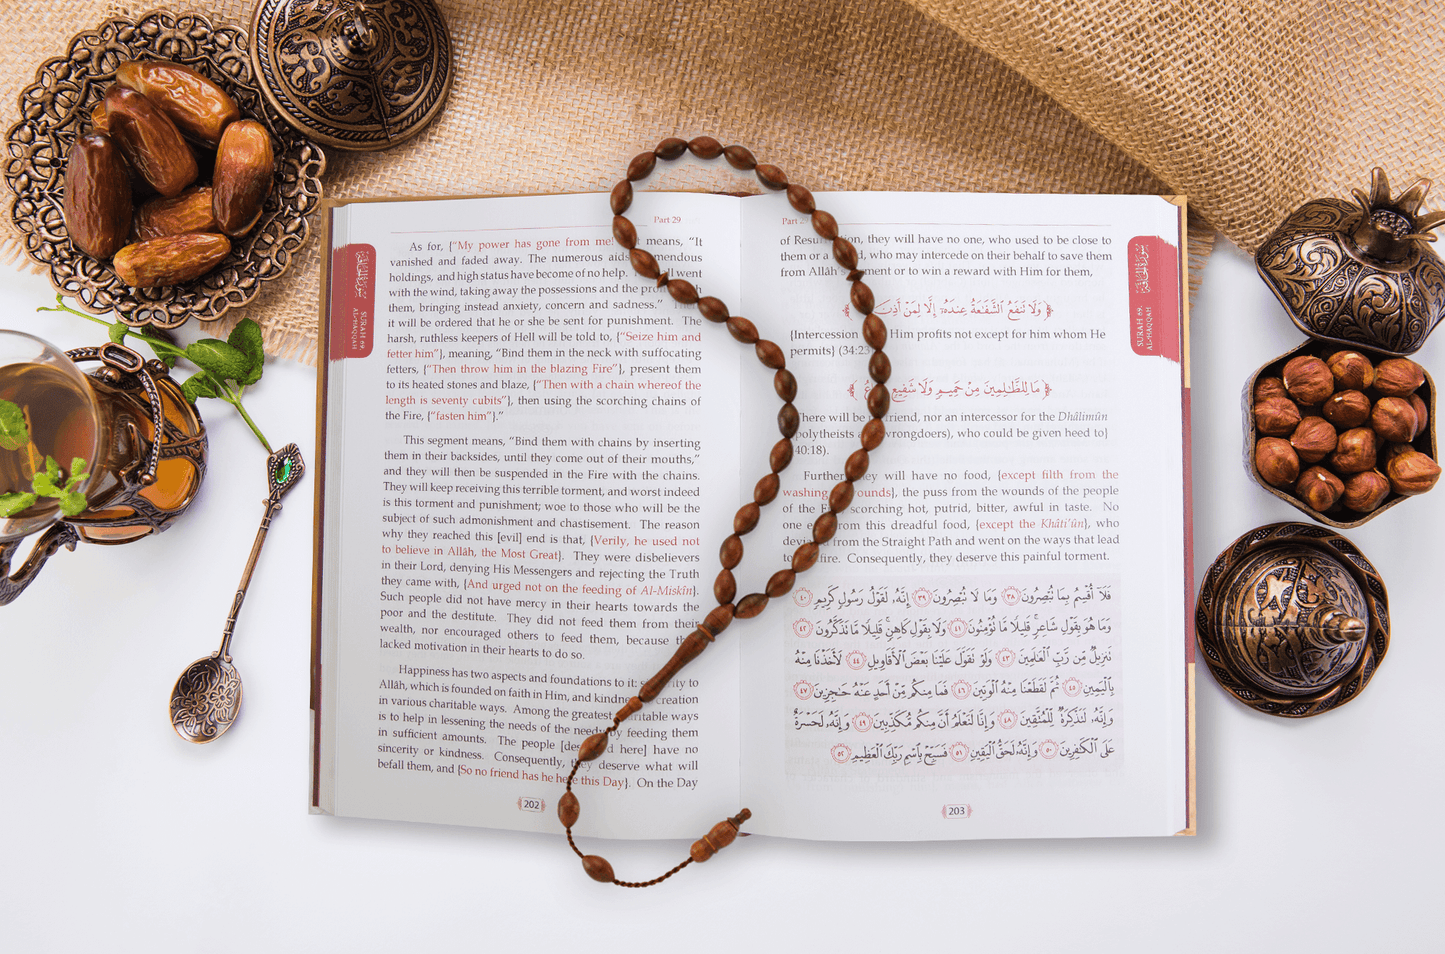 Part 29
As for, {"My power has gone from me! means, "It
vanished and faded away. The numerous aids, tremendous
holdings, and high status have become of no help. went
with the wind, taking away the possessions and the
them, bringing instead anxiety, concern and sadness."
it will be ordered that he or she be sent for punishment. The
harsh, ruthless keepers of Hell will be told to, {"Seize him and
fetter him"}, meaning, "Bind them in the neck with suffocating
fetters, {"Then throw him in the blazing Fire"}, present them
to its heated stones and blaze, {"Then with a chain whereof the
length is seventy cubits"}, then using the scorching chains of
the Fire, {"fasten him"}."
This segment means, "Bind them with chains by inserting
them in their backsides, until they come out of their mouths,"
and they will then be suspended in the Fire with the chains.
They will keep receiving this terrible torment, and worst indeed
is this torment and punishment; woe to those who will be the
subject of such admonishment and chastisement. The reason
why they reached this [evil] end is that, {Verily, he used not
to believe in Allâh, the Most Great}. They were disbelievers
in their Lord, denying His Messengers and rejecting the Truth
they came with, {And urged not on the feeding of Al-Miskîn}.
Such people did not have mercy in their hearts towards the
poor and the destitute. They did not feed them from their
wealth, nor encouraged others to feed them, because
lacked motivation in their hearts to do so.
Happiness has two aspects and foundations to it: to
Allâh, which is founded on faith in Him, and kindness creation
in various charitable ways. Among the greatest charitable ways
is to help in lessening the needs of the needy by feeding them
in sufficient amounts. The people here] have no
sincerity or kindness. Consequently, they deserve what will
befall them, and {So no friend has he here this Day}. On the Day
202
سورة الحاقة
SURAH 69.
AL-HAQQAH
Part 29
of Resurrection, they will have no one, who used to be close to
them or a who may intercede on their behalf to save them
from Allâh's or to win a reward with Him for them,
﴿ وَلَا تَنفَعُ الشَّفَاعَةُ عِندَهُ إِلَّا لِمَنْ أَذِنَ
{Intercession Him profits not except for him whom He
permits} (34:23)
﴿ مَا لِلظَّالِمِينَ مِنْ حَمِيمٍ وَلَا شَفِيعٍ
There will be friend, nor an intercessor for the Dhâlimûn
polytheists wrongdoers), who could be given heed to}
40:18).
Further they will have no food, {except filth from the
washing wounds}, the puss from the wounds of the people
of the scorching hot, putrid, bitter, awful in taste. No
one from this dreadful food, {except the Khâti'ûn}, who
from the Straight Path and went on the ways that lead
to Fire. Consequently, they deserve this painful torment.
فَلَا أُقْسِمُ بِمَا تُبْصِرُونَ ٣٨ وَمَا لَا تُبْصِرُونَ ٣٩ إِنَّهُ لَقَوْلُ رَسُولٍ كَرِيمٍ ٤٠
وَمَا هُوَ بِقَوْلِ شَاعِرٍ قَلِيلًا مَّا تُؤْمِنُونَ ٤١ وَلَا بِقَوْلِ كَاهِنٍ قَلِيلًا مَّا تَذَكَّرُونَ ٤٢
تَنزِيلٌ مِّن رَّبِّ الْعَالَمِينَ ٤٣ وَلَوْ تَقَوَّلَ عَلَيْنَا بَعْضَ الْأَقَاوِيلِ ٤٤ لَأَخَذْنَا مِنْهُ
بِالْيَمِينِ ٤٥ ثُمَّ لَقَطَعْنَا مِنْهُ الْوَتِينَ ٤٦ فَمَا مِنكُم مِّنْ أَحَدٍ عَنْهُ حَاجِزِينَ ٤٧
وَإِنَّهُ لَتَذْكِرَةٌ لِّلْمُتَّقِينَ ٤٨ وَإِنَّا لَنَعْلَمُ أَنَّ مِنكُم مُّكَذِّبِينَ ٤٩ وَإِنَّهُ لَحَسْرَةٌ
عَلَى الْكَافِرِينَ ٥٠ وَإِنَّهُ لَحَقُّ الْيَقِينِ ٥١ فَسَبِّحْ بِاسْمِ رَبِّكَ الْعَظِيمِ ٥٢
203
سورة الحاقة
SURAH 69.
AL-HAQQAH